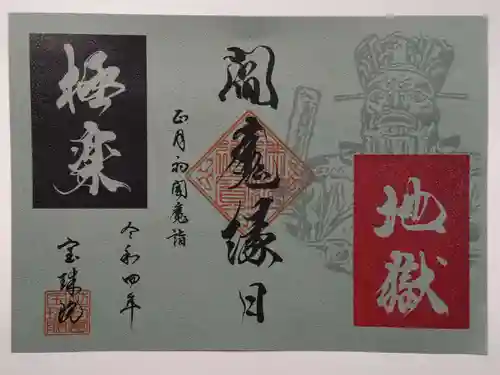 地獄
閻魔縁日
正月初閻魔詣
極楽
令和四年
宝珠院